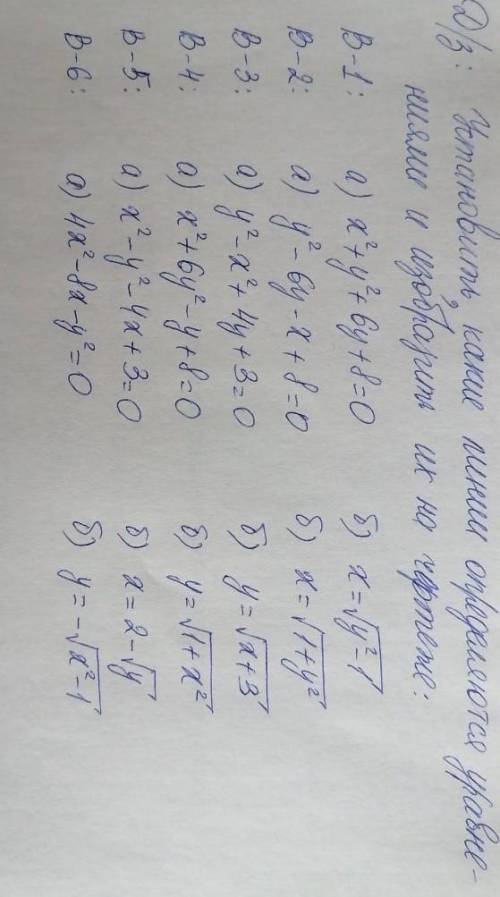 Д/з: Установить какие линии определяются уравне-
ниями и изобразить их на чертеже:
В-1: а) x²+y²+6y+8=0 б) x=√(y²-1)
В-2: а) y²-6y-x+8=0 б) x=√(1+y²)
В-3: а) y²-x²+4y+3=0 б) y=√(x+3)
В-4: а) x²+6y²-y+8=0 б) y=√(1+x²)
В-5: а) x²-y²-4x+3=0 б) x=2-√y
В-6: а) 4x²-8x-y²=0 б) y=-√(x²-1)